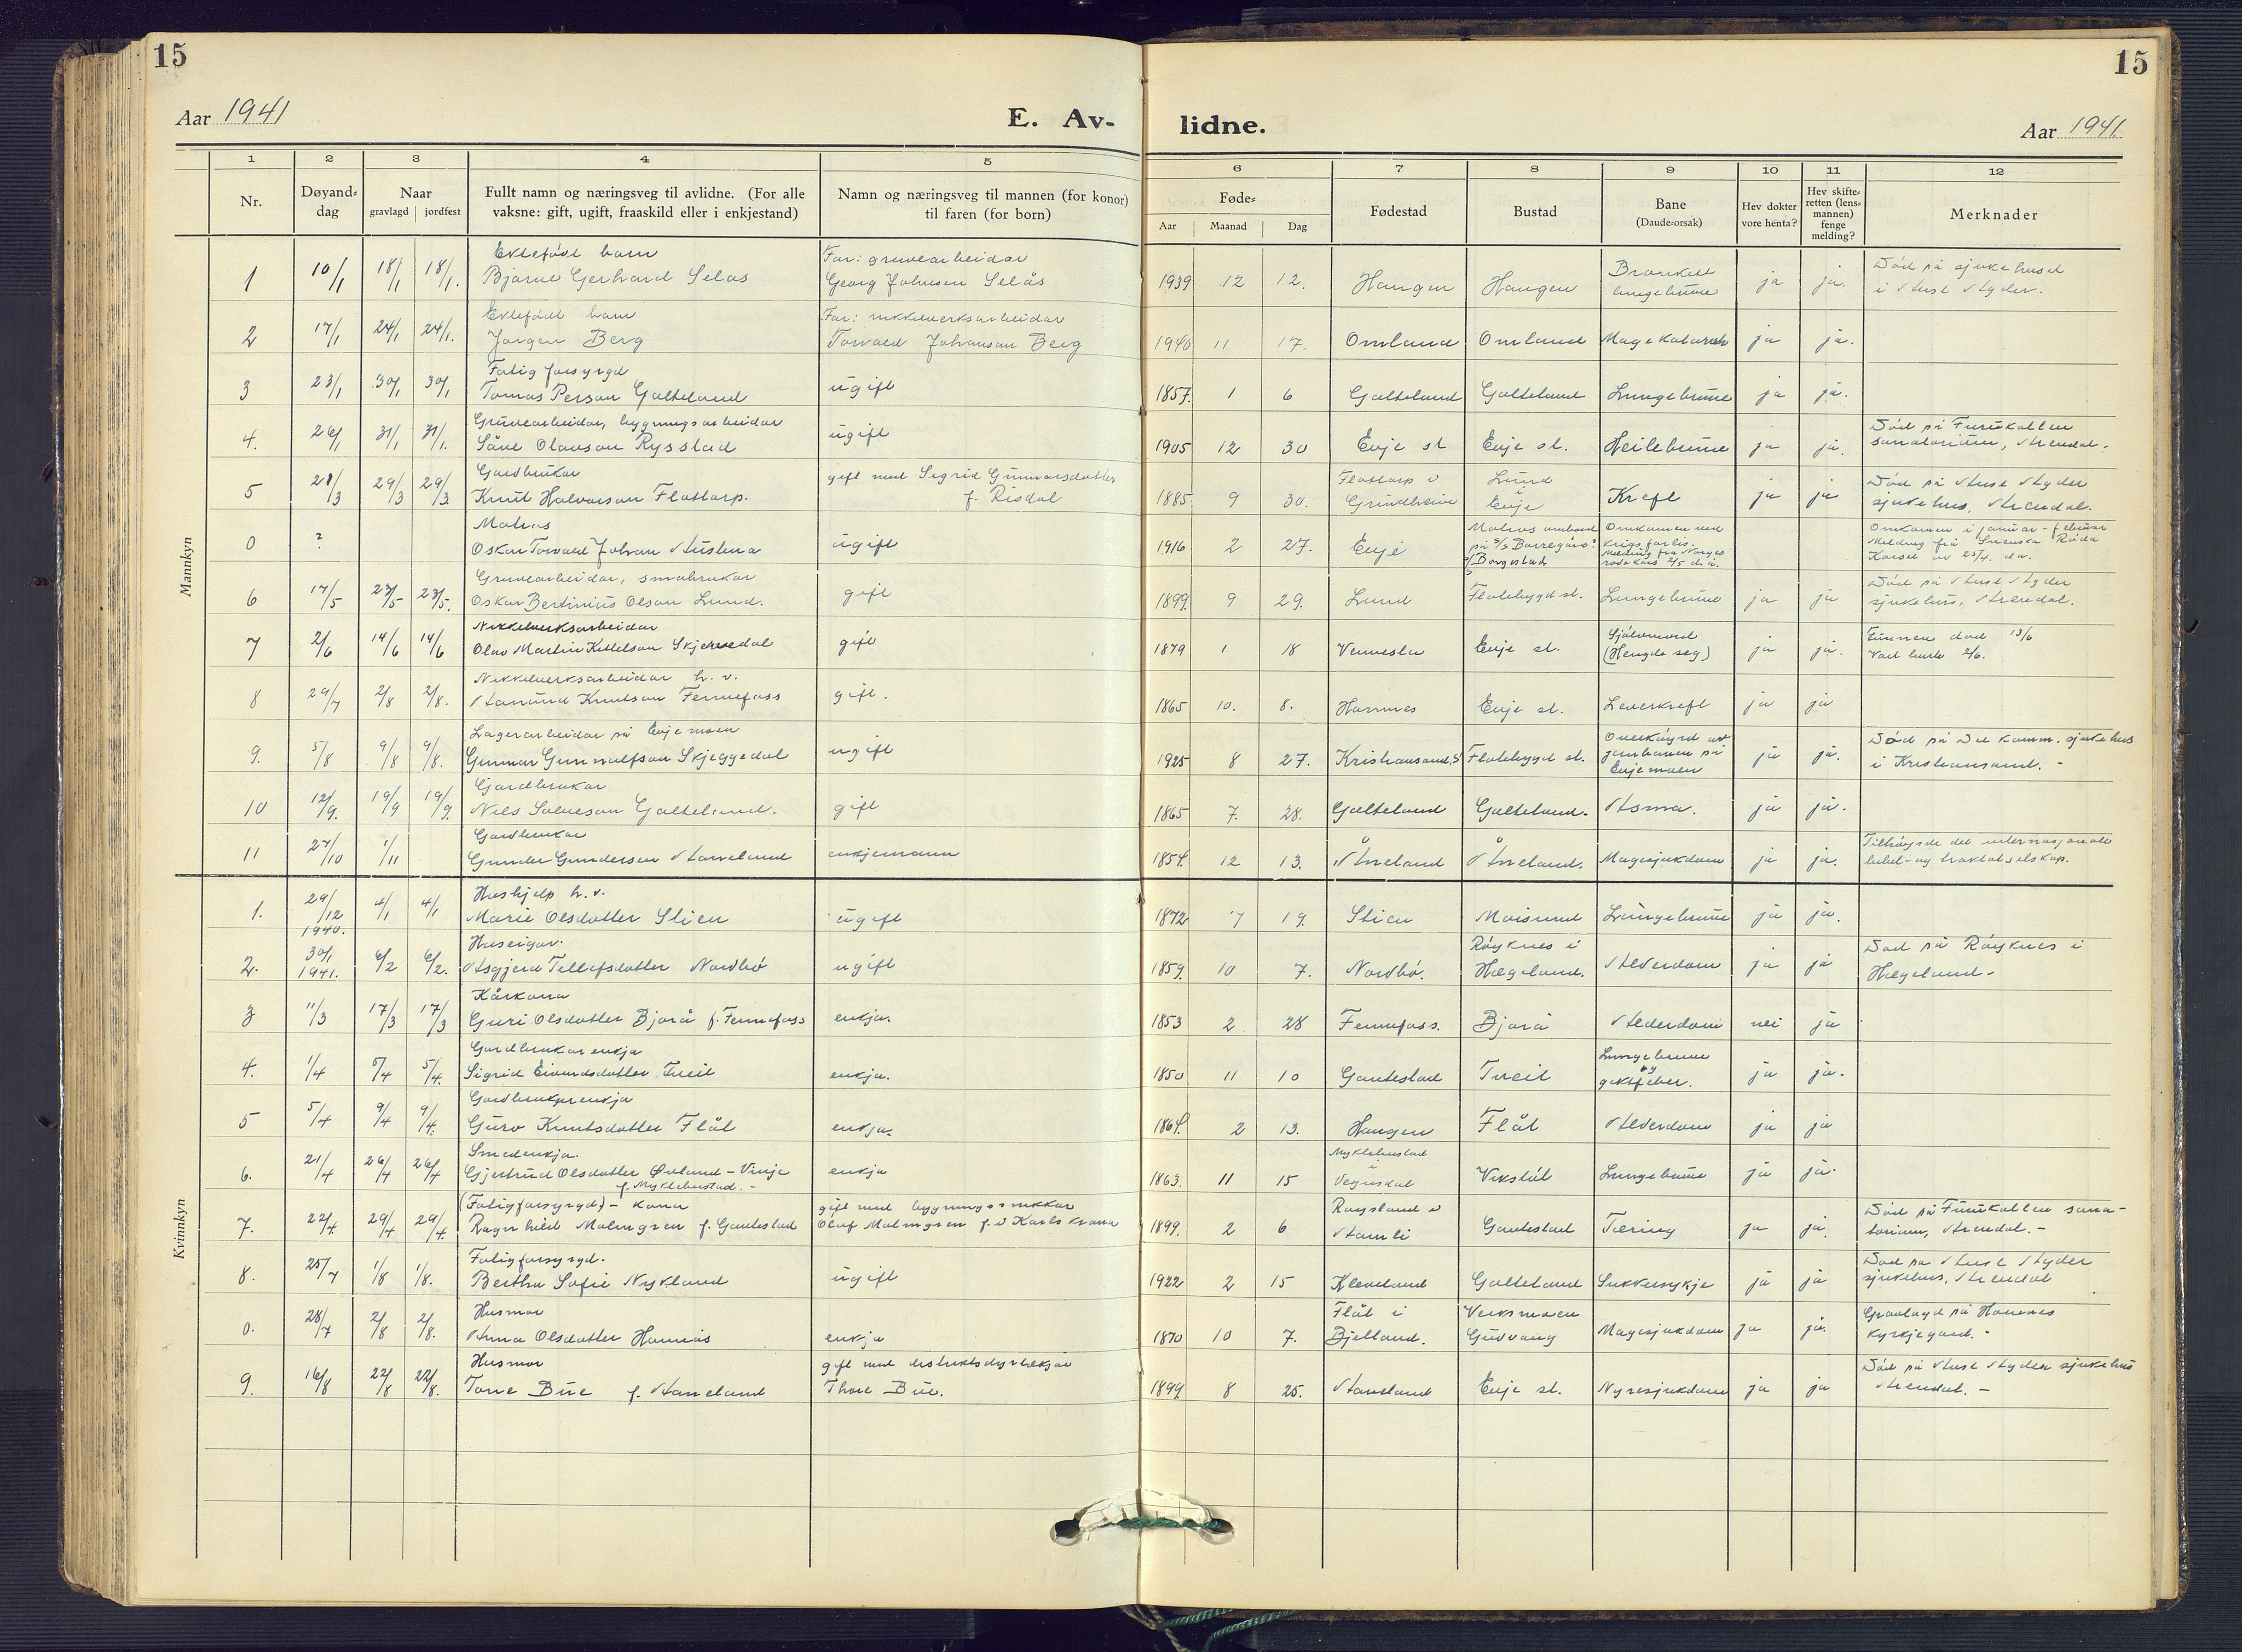 15
15
Aar 1941
E. Av-
lidne.
Aar 1941
1 2 3 4 5 6 7 8 9 10 11 12
Nr.
Døyand-
dag
Naar
gravlagd jordfest
Fullt namn og næringsveg til avlidne. (For alle
vaksne: gift, ugift, fraaskild eller i enkjestand)
Namn og næringsveg til mannen (for konor)
til faren (for born)
Føde-
Aar Maanad Dag
Fødestad
Bustad
Bane
(Daude-orsak)
Hev dokter
vore henta?
Hev skifte-
retten (lens-
mannen)
fenge
melding?
Merknader
Mannkyn
Ektefødt barn Far: gruvearbeidar
1 10/1 18/1 18/1. Bjarne Gerhard Selås Georg Johnsen Selås 1939 12 12. Haugen Haugen Bronkitt lungebrune ja ja. Død på sjukehuset
i Aust Agder.
Ektefødt barn Far: nikkelverksarbeidar
2 17/1 24/1 24/1. Jørgen Berg Torvald Johanson Berg 1940 11 17. Omland Omland Magekatarrh ja ja.
Fatig forsyrgd
3 23/1 30/1 30/1 Tomas Person Galteland ugift 1857. 1 6 Galteland Galteland Lungebrune ja ja.
Gruvearbeidar, bygningsarbeidar
4. 26/1 31/1 31/1. Såve Olavson Rysstad ugift 1905 12 30 Evje st Evje st. Heilebrune ja ja. Død på Furukollen
sanatorium, Arendal.
Gardbrukar gift med Sigrid Gunvarsdotter
5 21/3 29/3 29/3. Knut Halvorson Flottorp. f. Risdal 1885 9 30. Flottorp i Grindheim Lund i Evje Kreft ja ja Død på Aust Agder
sjukehus, Arendal.
Matros
0 ? Oskar Torvald Johan Austena ugift 1916 2 27. Evje Matros ombord
på S/S Borregård? Omkomen ved
krigsforlis.
Melding fra Norges
røde kors 2/5 d. å. Omkomen i januar - februar
Melding frå Svenska Röda
Korset av 23/4. d.å.
Gruvearbeidar, småbrukar
6 17/5 23/5 23/5. Oskar Bertinius Olson Lund. gift 1899. 9 29. Lund Flatebygd st. Lungebrune ja ja Død på Aust Agder
sjukehus, Arendal.
Nikkelverksarbeidar
7 2/6 14/6 14/6 Olav Martin Kittelson Skjerredal gift 1879 1 18 Vennesla Evje st. Sjølvmord
(Hengde seg) ja ja. Funnen død 13/6
Vart burte 2/6.
Nikkelverksarbeidar h. v.
8 29/7 2/8 2/8. Aanund Knutson Fennefoss gift. 1865 10. 8. Hornnes Evje st. Leverkreft ja ja
Lagerarbeidar på Evjemoen
9. 5/8 9/8 9/8. Gunnar Gunnulfson Skjeggedal ugift 1925 8 27. Kristiansand, S Flatebygd st. Overkøyrd av
jernbanen på
Evjemoen ja ja. Død på De komm. sjukehus
i Kristiansand. -
Gardbrukar
10 12/9. 19/9 19/9. Nils Salveson Galteland. gift 1865 7. 28. Galteland Galteland. Astma. ja ja.
Gardbrukar
11 27/10 1/11 Gunder Gundersen Aaneland enkjemann 1854. 12 13. Åneland Åneland. Magesjukdom ja ja. Tilhøyrde det internasjonale
bibel- og traktatselskap.
Kvinnkyn
Hushjelp h. v.
1. 29/12 1940. 4/1 4/1 Marie Olsdotter Stien ugift 1872 7 19. Stien Moisund Lungebrune ja ja.
Huseigar.
2. 30/1 1941. 6/2 6/2. Asgjerd Tellefsdotter Nordbø ugift 1859. 10 7. Nordbø. Røyknes i
Hægeland. Alderdom ja ja Død på Røyknes i
Hægeland -
Kårkona
3 11/3 17/3 17/3 Guri Olsdotter Bjorå f. Fennefoss enkja. 1853 2 28 Fennefoss. Bjorå Alderdom nei ja
Gardbrukarenkja
4. 1/4 5/4 5/4. Sigrid Eivindsdotter Tveit enkja. 1850 11 10 Gautestad Tveit Lungebrune
og
giktfeber. ja ja.
Gardbrukarenkja
5 5/4 9/4 9/4. Guro Knutsdotter Flåt enkja. 1864. 2 13. Haugen Flåt Alderdom ja ja
Smedenkja.
6. 21/4 26/4 26/4 Gjertrud Olsdotter Øvland - Vinje
f. Myklebustad. - enkja 1863. 11 15 Myklebustad
i
Vegusdal Vikstøl Lungebrune ja ja.
(Fatigforsyrgd) - kona gift med bygningssnikkar
7. 22/4. 29/4 29/4. Ragnhild Malmgren f. Gautestad Olaf Malmgren f. i Karlskrona 1899. 2 6 Røysland i
Aamli Gautestad Tæring ja ja. Død på Furukollen sana-
torium, Arendal. -
Fatigforsyrgd.
8. 25/7 1/8 1/8. Bertha Sofie Nykland ugift 1922 2 15 Kleveland Galteland Sukkersykje ja ja Død på Aust Agder
sjukehus, Arendal
Husmor
0. 28/7 2/8 2/8. Anna Olsdotter Hannås enkja 1870 10 7. Flåt i
Bjelland. Verksmoen
Gudvang Magesjukdom ja ja. Gravlagd på Hornnes
kyrkjegard. -
Husmor gift med distriktsdyrlækjar
9. 16/8 22/8 22/8. Tone Bue f. Aaneland Thore Bue. 1899. 8 25. Aaneland Evje st. Nyresjukdom ja ja Død på Aust Agder sjukehus
Arendal. -